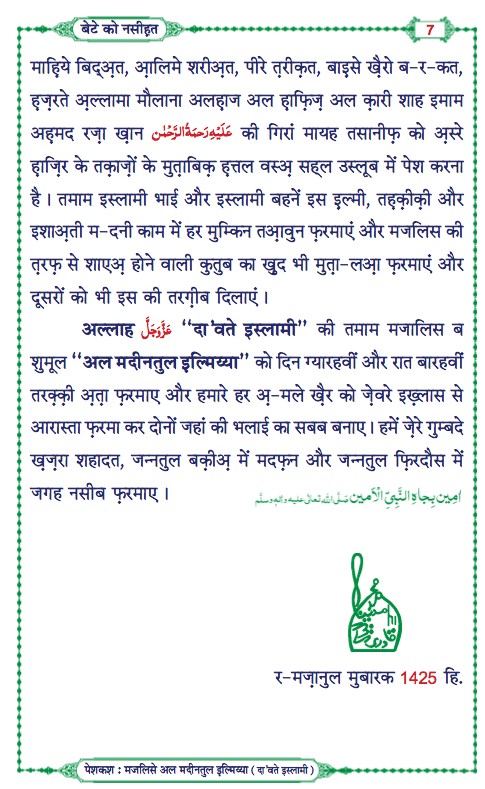 बेटे को नसीह़त
7
माह़िये बिद्अ़त, आ़लिमे शरीअ़त, पीरे त़रीक़त, बाइ़से ख़ैरो ब-र-कत,
ह़ज़रते अ़ल्लामा मौलाना अलह़ाज अल ह़ाफ़िज़ अल क़ारी शाह इमाम
अह़मद रज़ा ख़ान عَلَيْهِ رَحْمَةُ الرَّحْمٰن की गिरां मायह तसानीफ़ को अ़स्रे
ह़ाज़िर के तक़ाज़ों के मुत़ाबिक़ ह़त्तल वस्अ़ सह्ल उस्लूब में पेश करना
है । तमाम इस्लामी भाई और इस्लामी बहनें इस इ़ल्मी, तह़क़ीक़ी और
इशाअ़ती म-दनी काम में हर मुम्किन तआ़वुन फ़रमाएं और मजलिस की
त़रफ़ से शाएअ़ होने वाली कुतुब का ख़ुद भी मुत़ा-लआ़ फ़रमाएं और
दूसरों को भी इस की तरग़ीब दिलाएं ।
अल्लाह عَزَّوَجَلَّ ‘‘दा'वते इस्लामी’’ की तमाम मजालिस ब
शुमूल ‘‘अल मदीनतुल इ़ल्मिय्या’’ को दिन ग्यारहवीं और रात बारहवीं
तरक़्क़ी अ़त़ा फ़रमाए और हमारे हर अ़-मले ख़ैर को ज़ेवरे इख़्लास से
आरास्ता फ़रमा कर दोनों जहां की भलाई का सबब बनाए । हमें ज़ेरे गुम्बदे
ख़ज़रा शहादत, जन्नतुल बक़ीअ़ में मदफ़न और जन्नतुल फ़िरदौस में
जगह नसीब फ़रमाए ।
اٰمِين بِجَاهِ النَّبِيِّ الْاَمين صلَّى الله تعالى عليه واٰله وسلَّم
र-मज़ानुल मुबारक 1425 हि.
पेशकश : मजलिसे अल मदीनतुल इ़ल्मिय्या ( दा'वते इस्लामी )